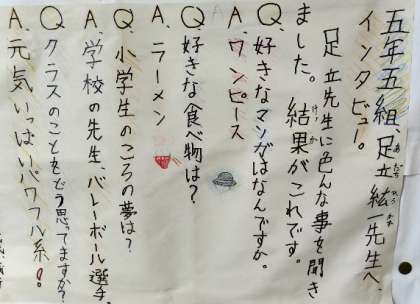 五年五組、足立紘一先生へ、
インタビュー。
足立先生に色んな事を聞き
ました。結果がこれです。
Q、好きなマンガはなんですか。
A、ワンピース
Q、好きな食べ物は?
A、ラーメン
Q、小学生のころの夢は?
A、学校の先生、バレーボール選手。
Q、クラスのことをどう思ってますか?
A、元気いっぱいパワフル系!